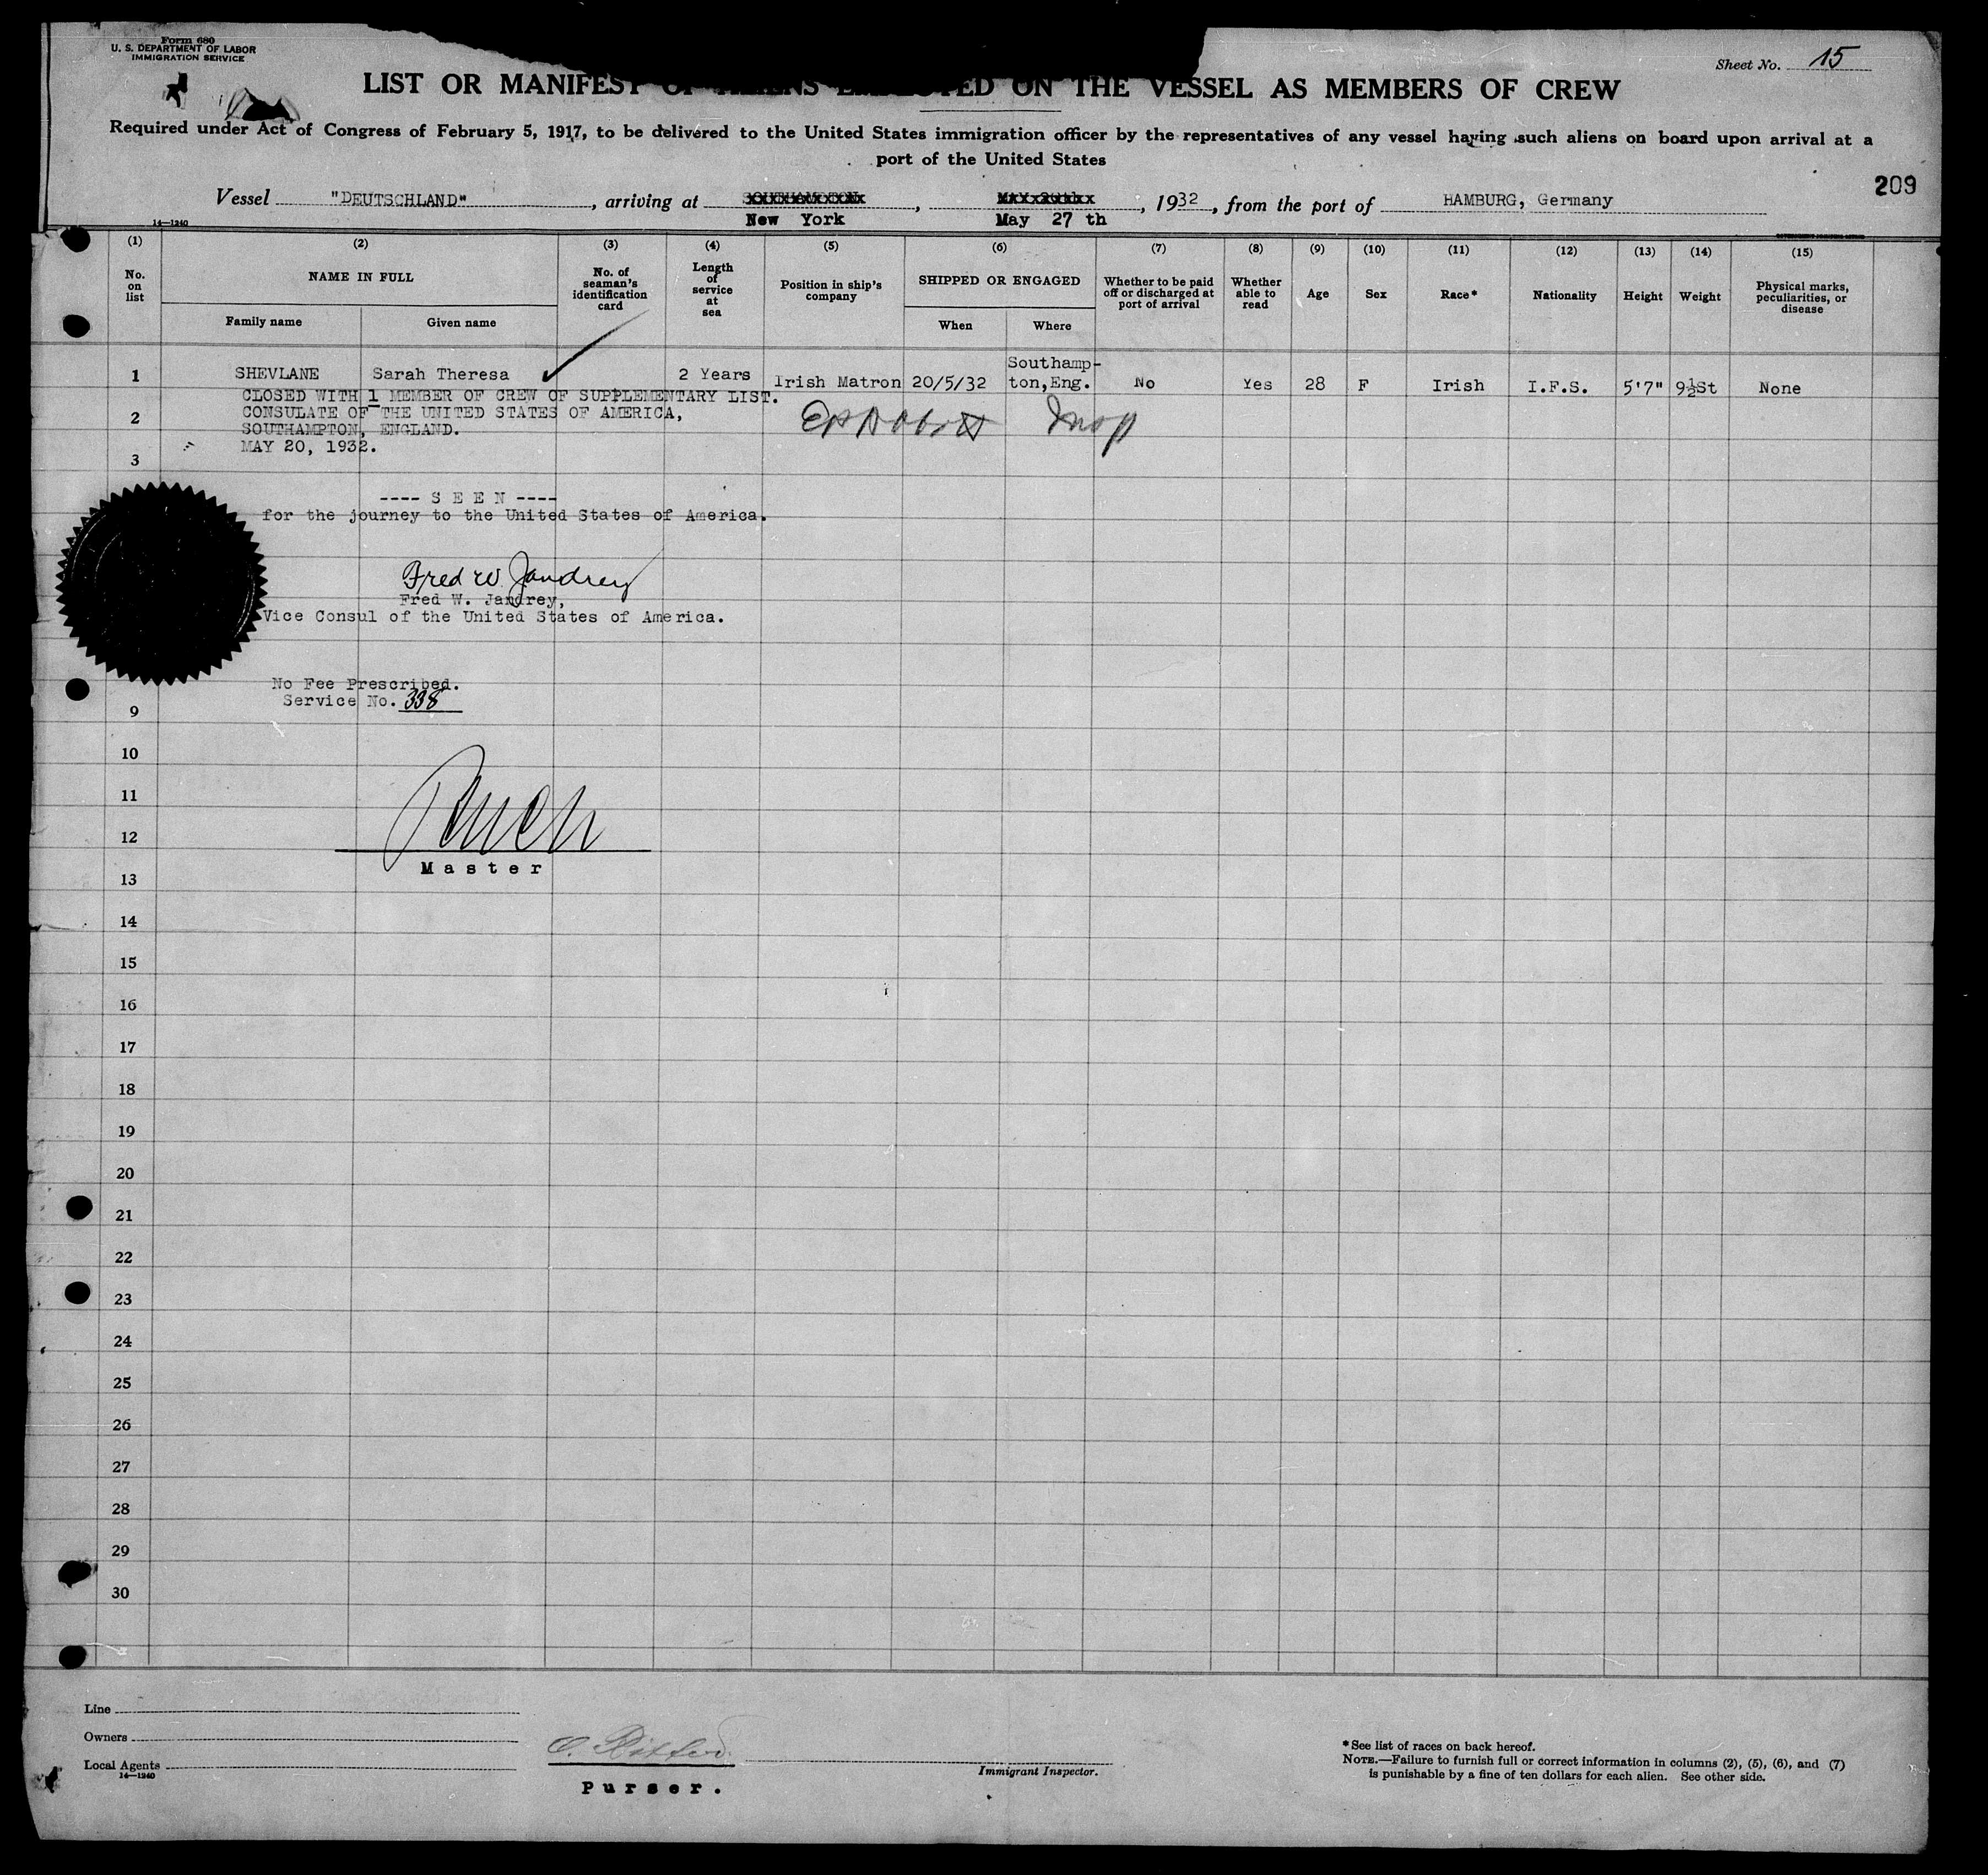 Form 680
U. S. DEPARTMENT OF LABOR
IMMIGRATION SERVICE
Sheet No. 15
LIST OR MANIFEST OF ALIENS EMPLOYED ON THE VESSEL AS MEMBERS OF CREW
Required under Act of Congress of February 5, 1917, to be delivered to the United States immigration officer by the representatives of any vessel having such aliens on board upon arrival at a
port of the United States
209
Vessel "DEUTSCHLAND" , arriving at SOUTHAMPTON , MAY 20th , 1932 , from the port of HAMBURG, Germany
New York May 27 th
14—1240
(1) (2) (3) (4) (5) (6) (7) (8) (9) (10) (11) (12) (13) (14) (15)
No. on list
NAME IN FULL
Family name
Given name
No. of seaman's identification card
Length of service at sea
Position in ship's company
SHIPPED OR ENGAGED
When
Where
Whether to be paid off or discharged at port of arrival
Whether able to read
Age
Sex
Race*
Nationality
Height
Weight
Physical marks, peculiarities, or disease
1 SHEVLANE Sarah Theresa 2 Years Irish Matron 20/5/32 Southamp-ton,Eng. No Yes 28 F Irish I.F.S. 5'7" 9½St None
CLOSED WITH 1 MEMBER OF CREW OF SUPPLEMENTARY LIST.
2 CONSULATE OF THE UNITED STATES OF AMERICA,
SOUTHAMPTON, ENGLAND.
MAY 20, 1932.
Insp
3
---- S E E N ----
for the journey to the United States of America.
Fred W. Jandrey
Fred W. Jandrey,
Vice Consul of the United States of America.
No Fee Prescribed.
Service No. 338
9
10
11
12
Master
13
14
15
16
17
18
19
20
21
22
23
24
25
26
27
28
29
30
Line
Owners
Local Agents
14—1240
Purser.
Immigrant Inspector.
*See list of races on back hereof.
NOTE.—Failure to furnish full or correct information in columns (2), (5), (6), and (7)
is punishable by a fine of ten dollars for each alien. See other side.